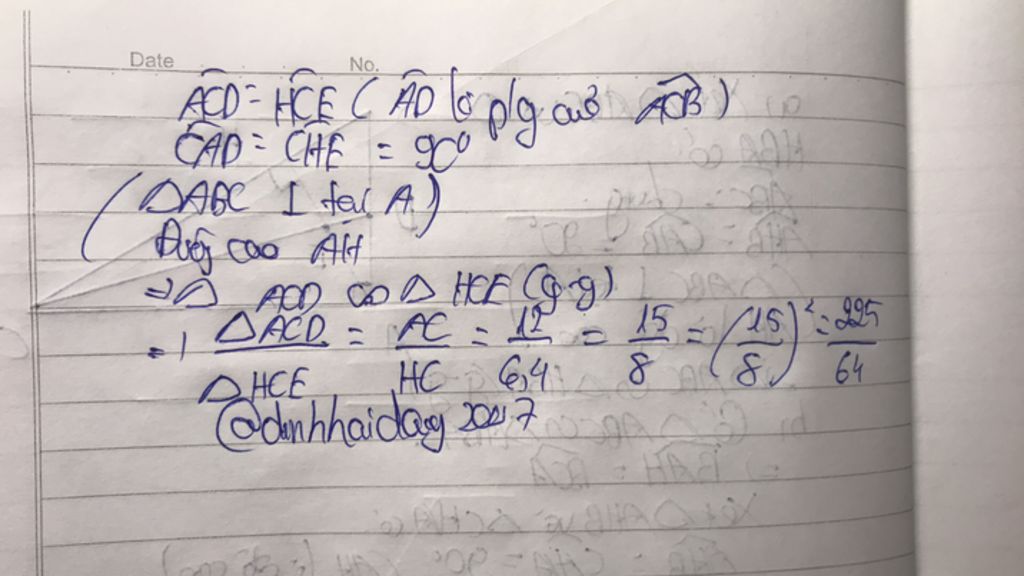 Date No.
ACD = HCE ( AD là p/g của ACB )
CAD = CHE = 90°
( ΔABC ⊥ tại A )
Đường cao AH
=> Δ ACD ∽ Δ HCE (g-g)
=> ΔACD / ΔHCE = AC / HC = 12 / 6,4 = 15 / 8 = (15 / 8)² = 225 / 64
@dinhhaidang